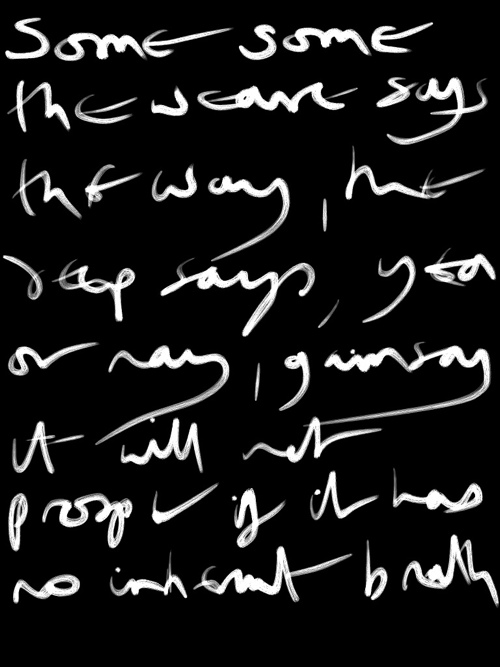 Some some
the weave says
the way, the
reap says, yea
or nay, gainsay
it will not
prosper if it has
no inherent breath